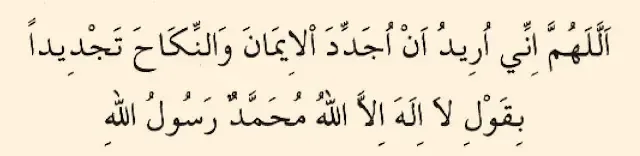 اَللَهُمَّ اِنِّي اُرِيدُ اَنْ اُجَدِّدَ اْلاِيمَانَ وَالنِّكَاحَ تَجْدِيداً
بِقَوْلِ لاَ اِلَهَ اِلاَّ اللهُ مُحَمَّدٌ رَسُولُ اللهِ